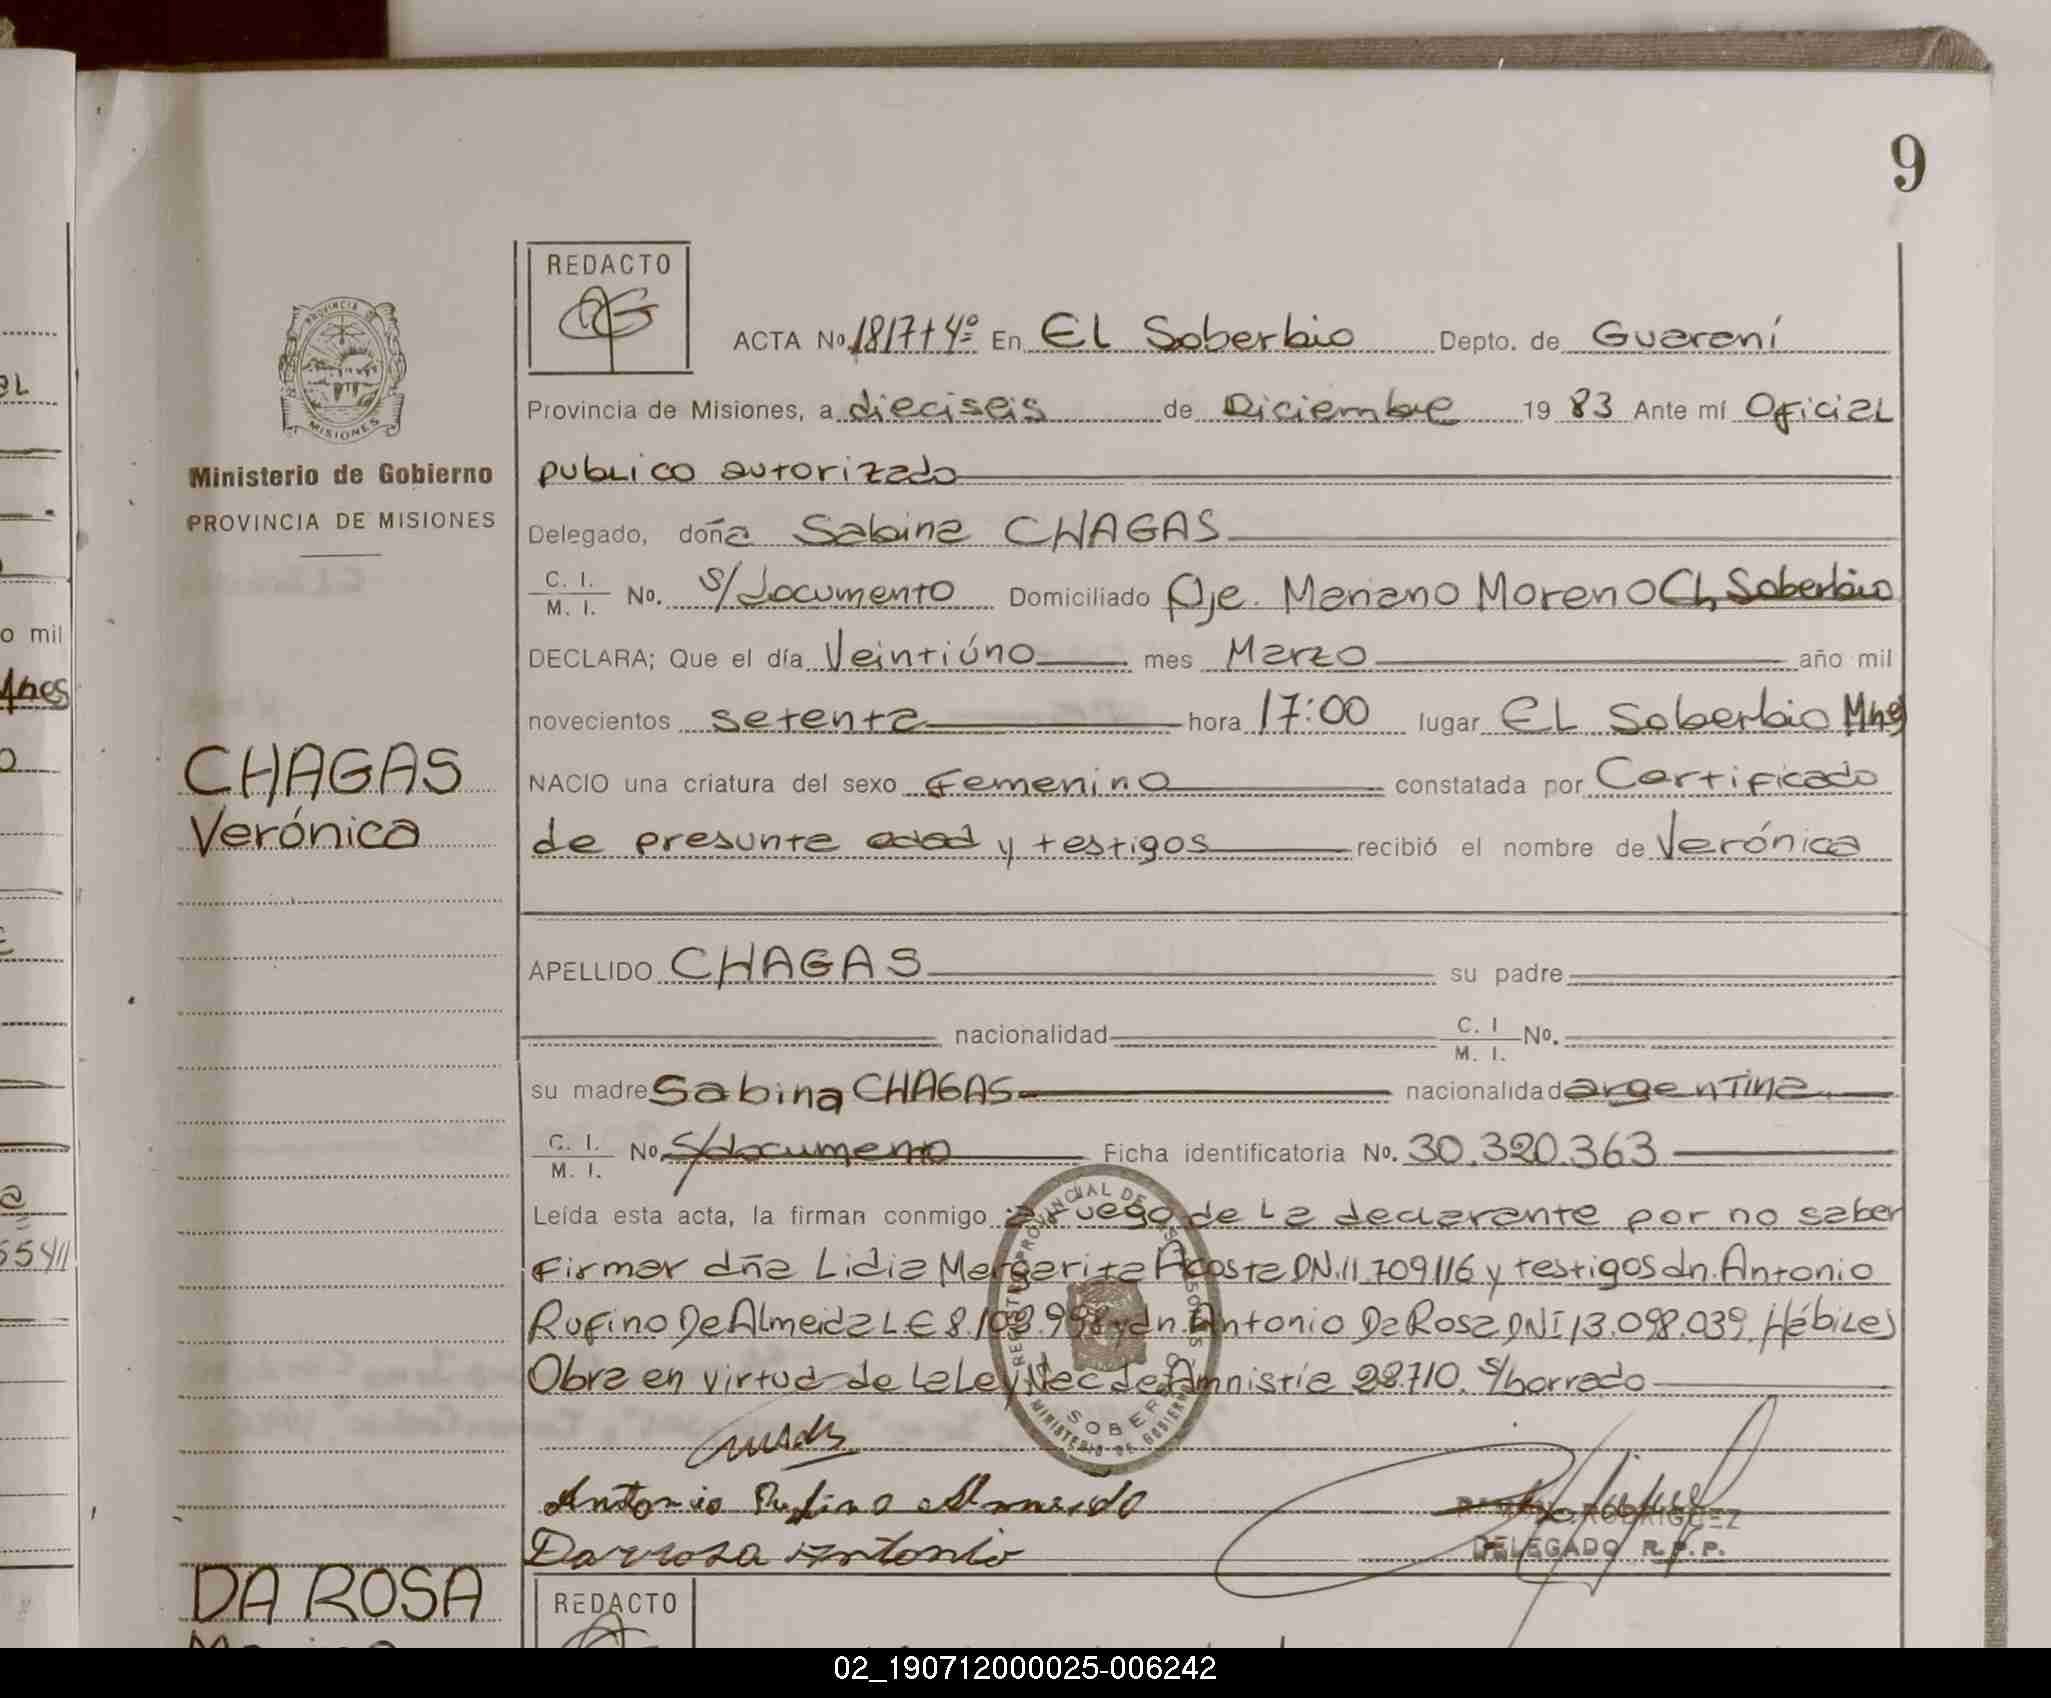 9
REDACTO
ACTA No 1817+4º En EL Soberbio Depto. de Guaraní
Provincia de Misiones, a dieciseis de Diciembre 19 83 Ante mí Oficial
publico autorizado
Delegado, doña Sabina CHAGAS
C. I.
M. I. No. s/documento Domiciliado Pje. Mariano Moreno Soberbio
DECLARA; Que el día Veintiúno mes Marzo año mil
novecientos setenta hora 17:00 lugar EL Soberbio Mnes
NACIO una criatura del sexo Femenino constatada por Certificado
de presunta edad y testigos recibió el nombre de Verónica
APELLIDO CHAGAS su padre
nacionalidad C. I
M. I. No.
su madre Sabina CHAGAS nacionalidad argentina
C. I.
M. I. No. s/documento Ficha identificatoria No. 30.320.363
Leída esta acta, la firman conmigo a ruego de La declarante por no saber
Firmar dña Lidia Margarita Acosta DN.11.709116 y testigos dn. Antonio
Rufino De Almeida L.E 8.103.998 y dn. Antonio Da Rosa DNI 13.098.039. Hábiles
Obra en virtud de La Ley Nac de Amnistía 22.710. s/borrado
Antonio Rufino Almeida
Da rosa Antonio
RODRIGUEZ
DELEGADO R. P. P.
PROVINCIA DE
MISIONES
Ministerio de Gobierno
PROVINCIA DE MISIONES
CHAGAS
Verónica
DA ROSA
REDACTO
REGISTRO PROVINCIAL DE LAS PERSONAS
SOBERBIO
MINISTERIO DE GOBIERNO
aL
o mil
Mnes
o
a
5541
02_190712000025-006242